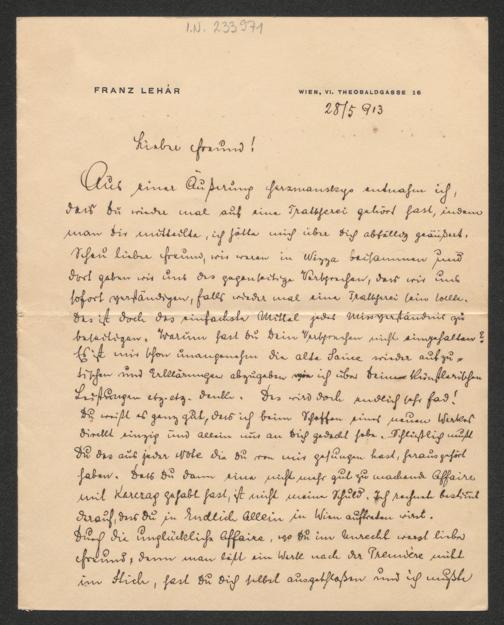 I.N. 233971
FRANZ LEHÁR
WIEN, VI. THEOBALDGASSE 16
28/5 913
Lieber Freund!
Aus einer Äußerung Herzmanskys entnahm ich,
dass Du wieder mal auf eine Tratscherei gehört hast, indem
man dir mitteilte, ich hätte mich über Dich abfällig geäußert.
Schau lieber Freund, wir waren in Nizza beisammen und
dort gaben wir uns das gegenseitige Versprechen, dass wir uns
sofort verständigen, falls wieder mal eine Tratscherei sein sollte.
Das ist doch das einfachste Mittel jedes Missverständnis zu
beseitigen. Warum hast Du Dein Versprechen nicht eingehalten?
Es ist mir schon unangenehm die alte Sauce wieder aufzu-
tischen und Erklärungen abzugeben wie ich über Deine künstlerischen
Leistungen etz. etz. denke. Das wird doch endlich sehr fad!
Du weißt es ganz gut, dass ich beim Schaffen eines neuen Werkes
direkt einzig und allein nur an Dich gedacht habe. Schließlich mußt
Du das aus jeder Note die Du von mir gesungen hast, herausgehört
haben. Dass Du dann eine nicht mehr gut zu machende Affaire
mit Karczag gehabt hast, ist nicht meine Schuld. Ich rechnete bestimmt
darauf, dass Du in Endlich Allein in Wien auftreten wirst.
Durch die unglückliche Affaire, wo Du im Unrecht warst lieber
Freund, denn man läßt ein Werk nach der Première nicht
im Stich, hast Du Dich selbst ausgeschloßen und ich mußte